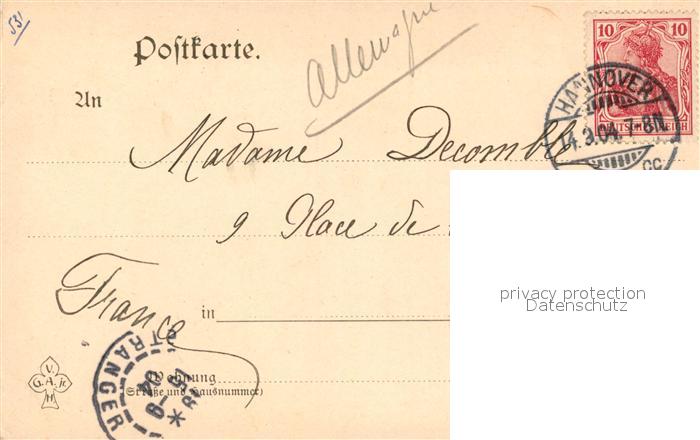 531
Postkarte.
Allemagne
10 10
DEUTSCHES REICH
HANNOVER
14.3.04. 7-8N.
CC
An
Madame Decomble
9 Place de
privacy protection
Datenschutz
France
in
V.
G. A. jr.
H
Wohnung
(Straße und Hausnummer)
ETRANGER